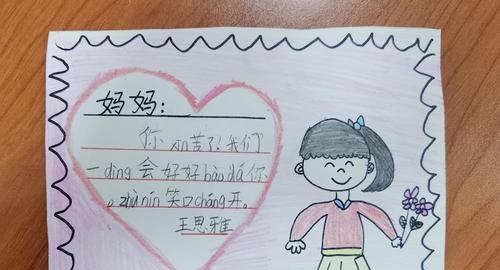 妈妈：
你xīn苦了！我们
一dìng会好好bào dá你
。zhù nín笑口cháng开。
王思雅